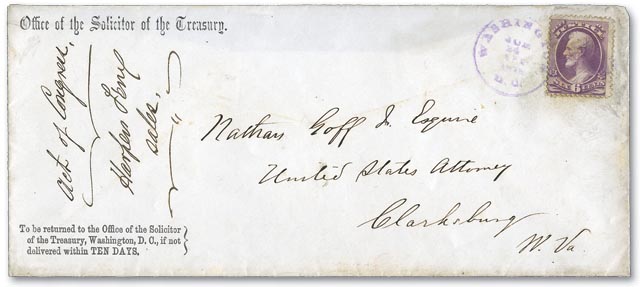 Office of the Solicitor of the Treasury.
Act of Congress.
Harpers Ferry
sales.
WASHINGTON
JUN
24
D.C.
SIX 6 CENTS
Nathan Goff Jr Esquire
United States Attorney
Clarksburg
W. Va.
To be returned to the Office of the Solicitor
of the Treasury, Washington, D. C., if not
delivered within TEN DAYS.